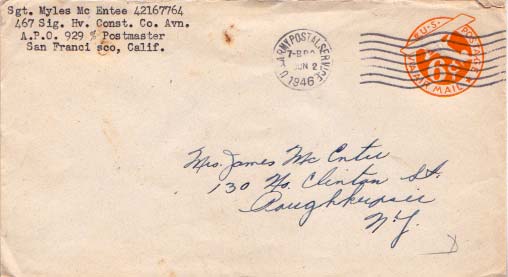 Sgt. Myles Mc Entee 42167764
467 Sig. Hv. Const. Co. Avn.
A.P.O. 929 % Postmaster
San Franci sco, Calif.
U.S. ARMY POSTAL SERVICE
JUN 2
1946
U.S. POSTAGE
6¢
AIR MAIL
Mrs. James Mc Entee
130 No. Clinton St.
Poughkeepsie
N.Y.